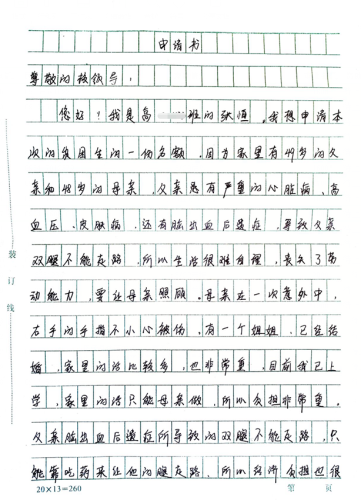 申请书
尊敬的校领导：
您好！我是高 班的张恒，我想申请本
次的贫困生的一份名额，因为家里有49岁的父
亲和48岁的母亲，父亲患有严重的心脏病、高
血压、皮肤病，还有脑出血后遗症，导致父亲
双腿不能走路，所以生活很难自理，丧失了劳
动能力，要让母亲照顾。母亲在一次意外中，
右手的手指不小心被伤，有一个姐姐，已经结
婚，家里的活比较多，也非常重，目前我已上
学，家里的活只能母亲做，所以负担非常重。
父亲脑出血后遗症所导致的双腿不能走路，只
能靠吃药来让他的腿走路，所以经济负担也很
装订线
20×13=260
第 页